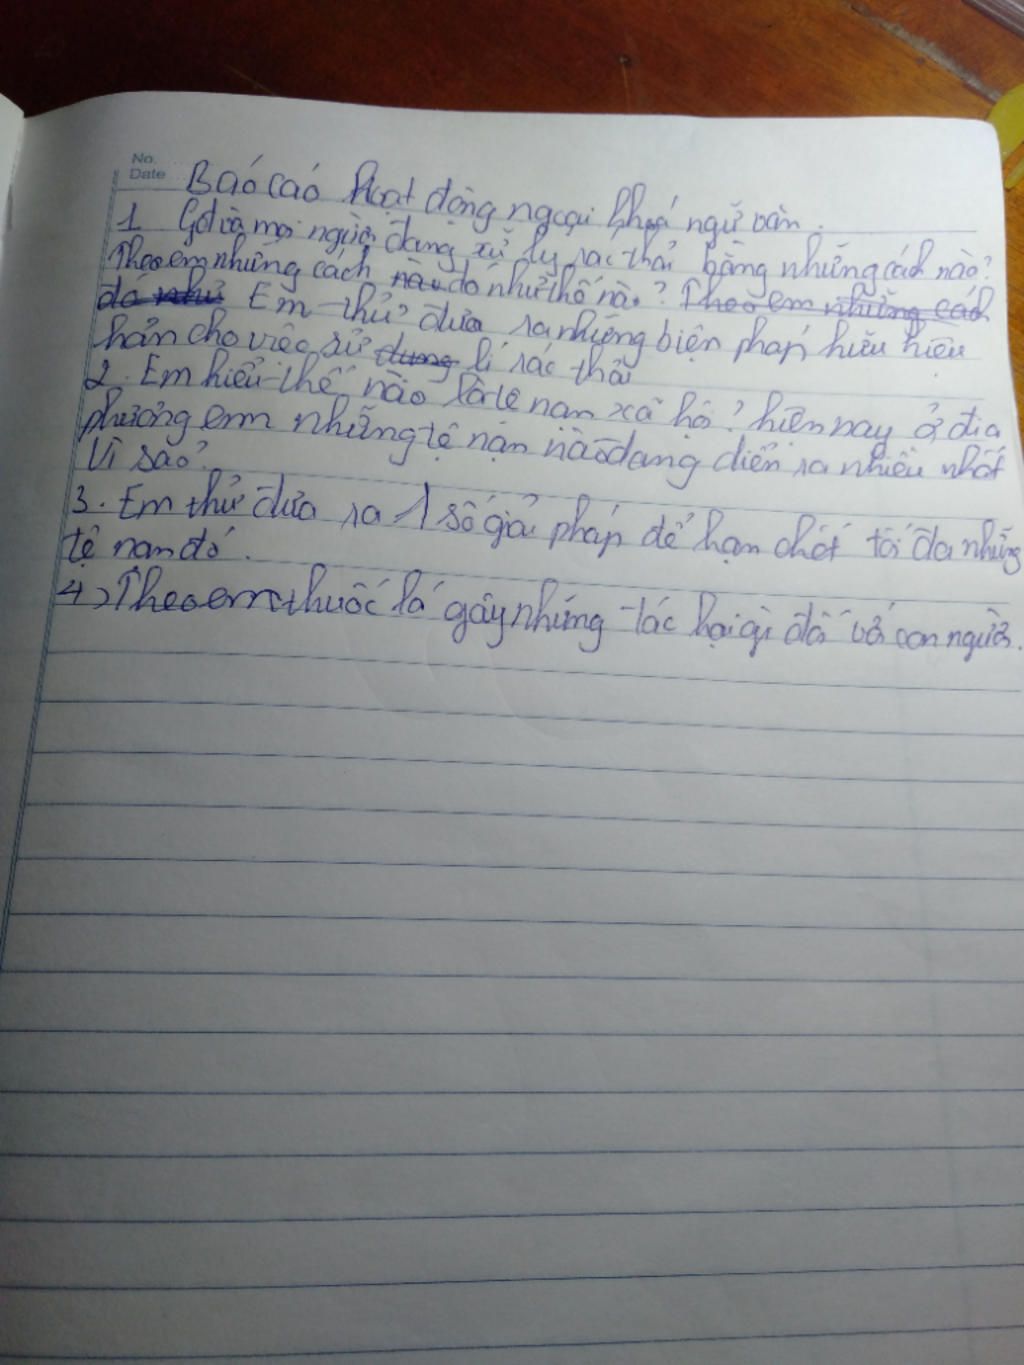 No.
Date
Báo cáo hoạt động ngoại khoá ngữ văn.
1 Gđ và mọi người đang xử lý rác thải bằng những cách nào?
Theo em những cách nào đó như thế nào? Theo em những cách
đó như Em thử đưa ra những biện pháp hữu hiệu
hản cho việc sử dung lí rác thải
2. Em hiểu thế nào là tệ nạn xã hội? hiện nay ở địa
phương em những tệ nạn nào đang diển ra nhiều nhất
Vì sao?
3. Em thử đưa ra 1 số giải pháp để hạn chết tối đa những
tệ nạn đó.
4) Theo em thuốc lá gây những tác hại gì đối với con người.